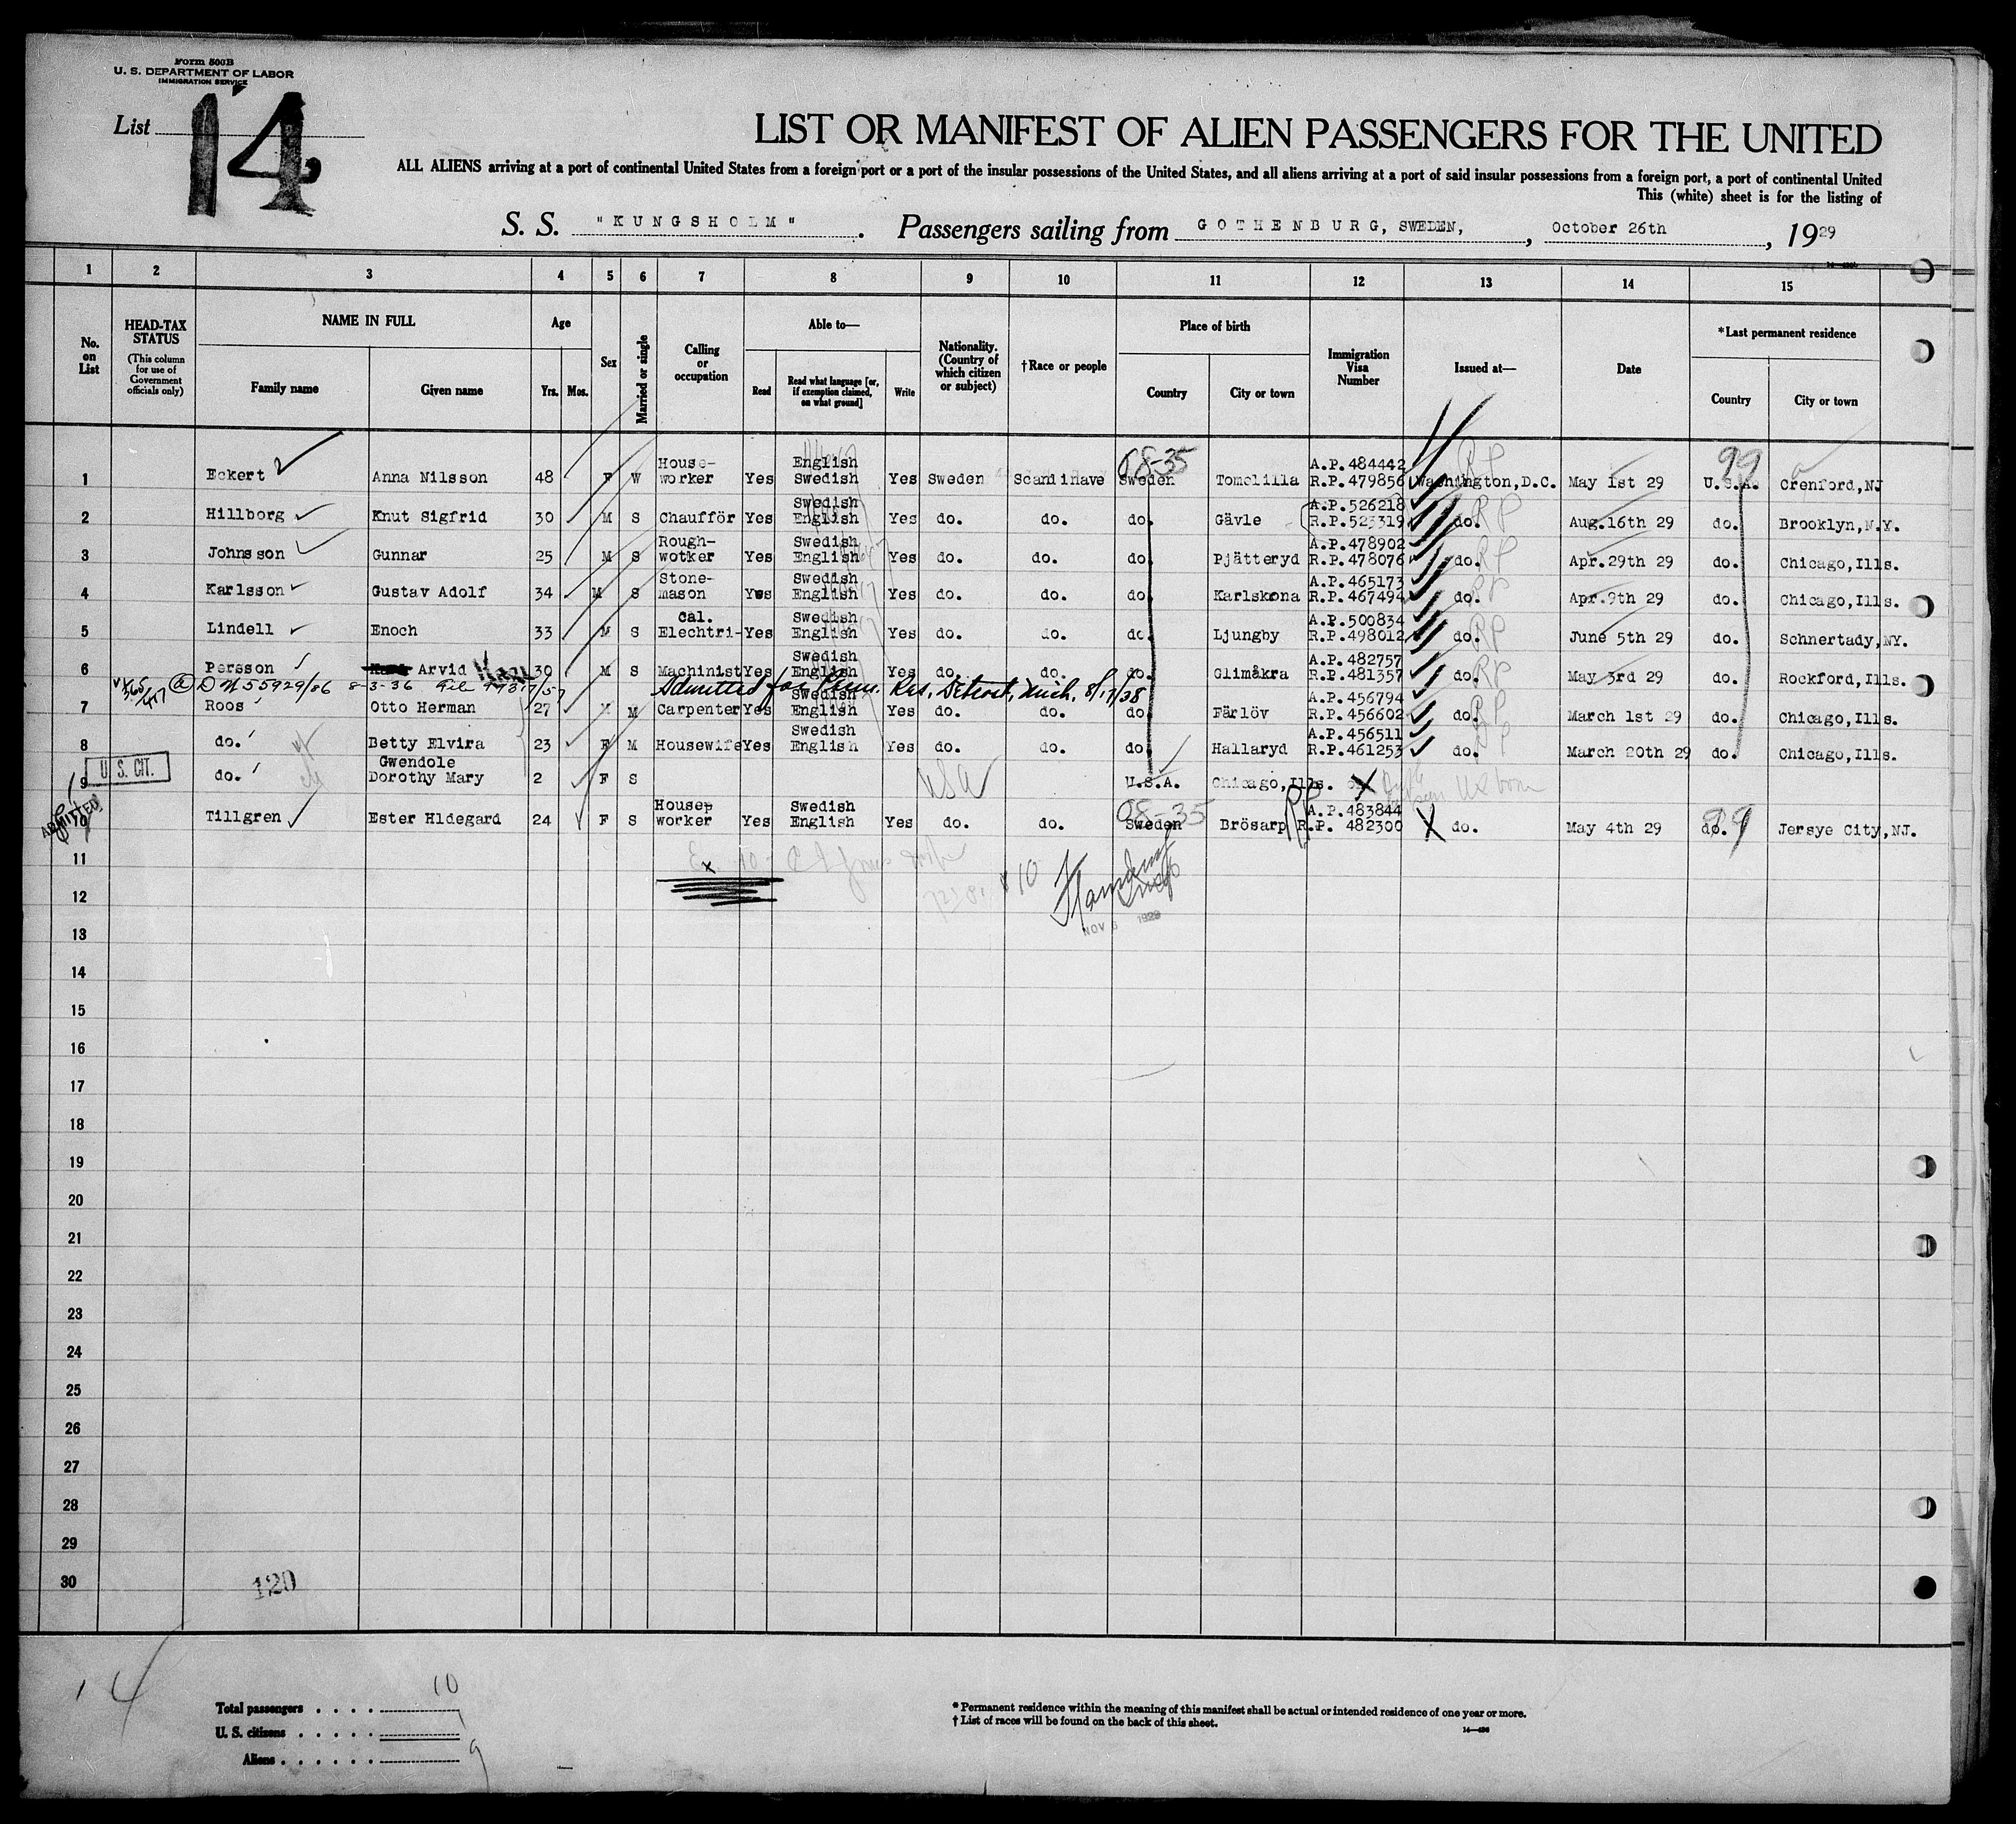 Form 500B
U. S. DEPARTMENT OF LABOR
IMMIGRATION SERVICE
List 14
LIST OR MANIFEST OF ALIEN PASSENGERS FOR THE UNITED
ALL ALIENS arriving at a port of continental United States from a foreign port or a port of the insular possessions of the United States, and all aliens arriving at a port of said insular possessions from a foreign port, a port of continental United
This (white) sheet is for the listing of
S. S. "KUNGSHOLM" . Passengers sailing from GOTHENBURG, SWEDEN, , October 26th , 1929
1 2 3 4 5 6 7 8 9 10 11 12 13 14 15
No. on List
HEAD-TAX STATUS (This column for use of Government officials only)
NAME IN FULL
Family name Given name
Age
Yrs. Mos.
Sex
Married or single
Calling or occupation
Able to—
Read Read what language [or, if exemption claimed, on what ground] Write
Nationality. (Country of which citizen or subject)
†Race or people
Place of birth
Country City or town
Immigration Visa Number
Issued at—
Date
*Last permanent residence
Country City or town
House- English 08-35 A.P.484442 RP 99
1 Eckert Anna Nilsson 48 F W worker Yes Swedish Yes Sweden Scandinave Sweden Tomelilla R.P.479856 Washington,D.C. May 1st 29 U.S.A. Crenford,NJ
Swedish A.P.526218
2 Hillborg Knut Sigfrid 30 M S Chaufför Yes English Yes do. do. do. Gävle R.P.523319 do. RP Aug.16th 29 do. Brooklyn,N.Y.
Rough- Swedish A.P.478902
3 Johnsson Gunnar 25 M S wotker Yes English Yes do. do. do. Pjätteryd R.P.478076 do. RP Apr.29th 29 do. Chicago,Ills.
Stone- Swedish A.P.465173
4 Karlsson Gustav Adolf 34 M S mason Yes English Yes do. do. do. Karlskona R.P.467494 do. RP Apr.9th 29 do. Chicago,Ills.
Cal. Swedish A.P.500834
5 Lindell Enoch 33 M S Elechtri- Yes English Yes do. do. do. Ljungby R.P.498012 do. RP June 5th 29 do. Schnertady,NY.
Swedish A.P.482757
6 Persson Arvid Karl 30 M S Machinist Yes English Yes do. do. do. Glimåkra R.P.481357 do. RP May 3rd 29 do. Rockford,Ills.
8-3-36 Admitted for Perm. Res. Detroit, Mich. 8/17/38
Swedish A.P.456794
7 Roos Otto Herman 27 M M Carpenter Yes English Yes do. do. do. Färlöv R.P.456602 do. RP March 1st 29 do. Chicago,Ills.
Swedish A.P.456511
8 do. Betty Elvira 23 F M Housewife Yes English Yes do. do. do. Hallaryd R.P.461253 do. March 20th 29 do. Chicago,Ills.
U. S. CIT. Gwendole
9 do. Dorothy Mary 2 F S USA U.S.A. Chicago,Ills.
ADMITTED Housep Swedish 08-35 RP A.P.483844 99
10 Tillgren Ester Hldegard 24 F S worker Yes English Yes do. do. Sweden Brösarp R.P. 482300 do. May 4th 29 do. Jersye City,NJ.
11
12
NOV 1929
13
14
15
16
17
18
19
20
21
22
23
24
25
26
27
28
29
30
120
14
Total passengers . . . . 10
U. S. citizens . . . . . 1
Aliens . . . . . . 9
* Permanent residence within the meaning of this manifest shall be actual or intended residence of one year or more.
† List of races will be found on the back of this sheet.